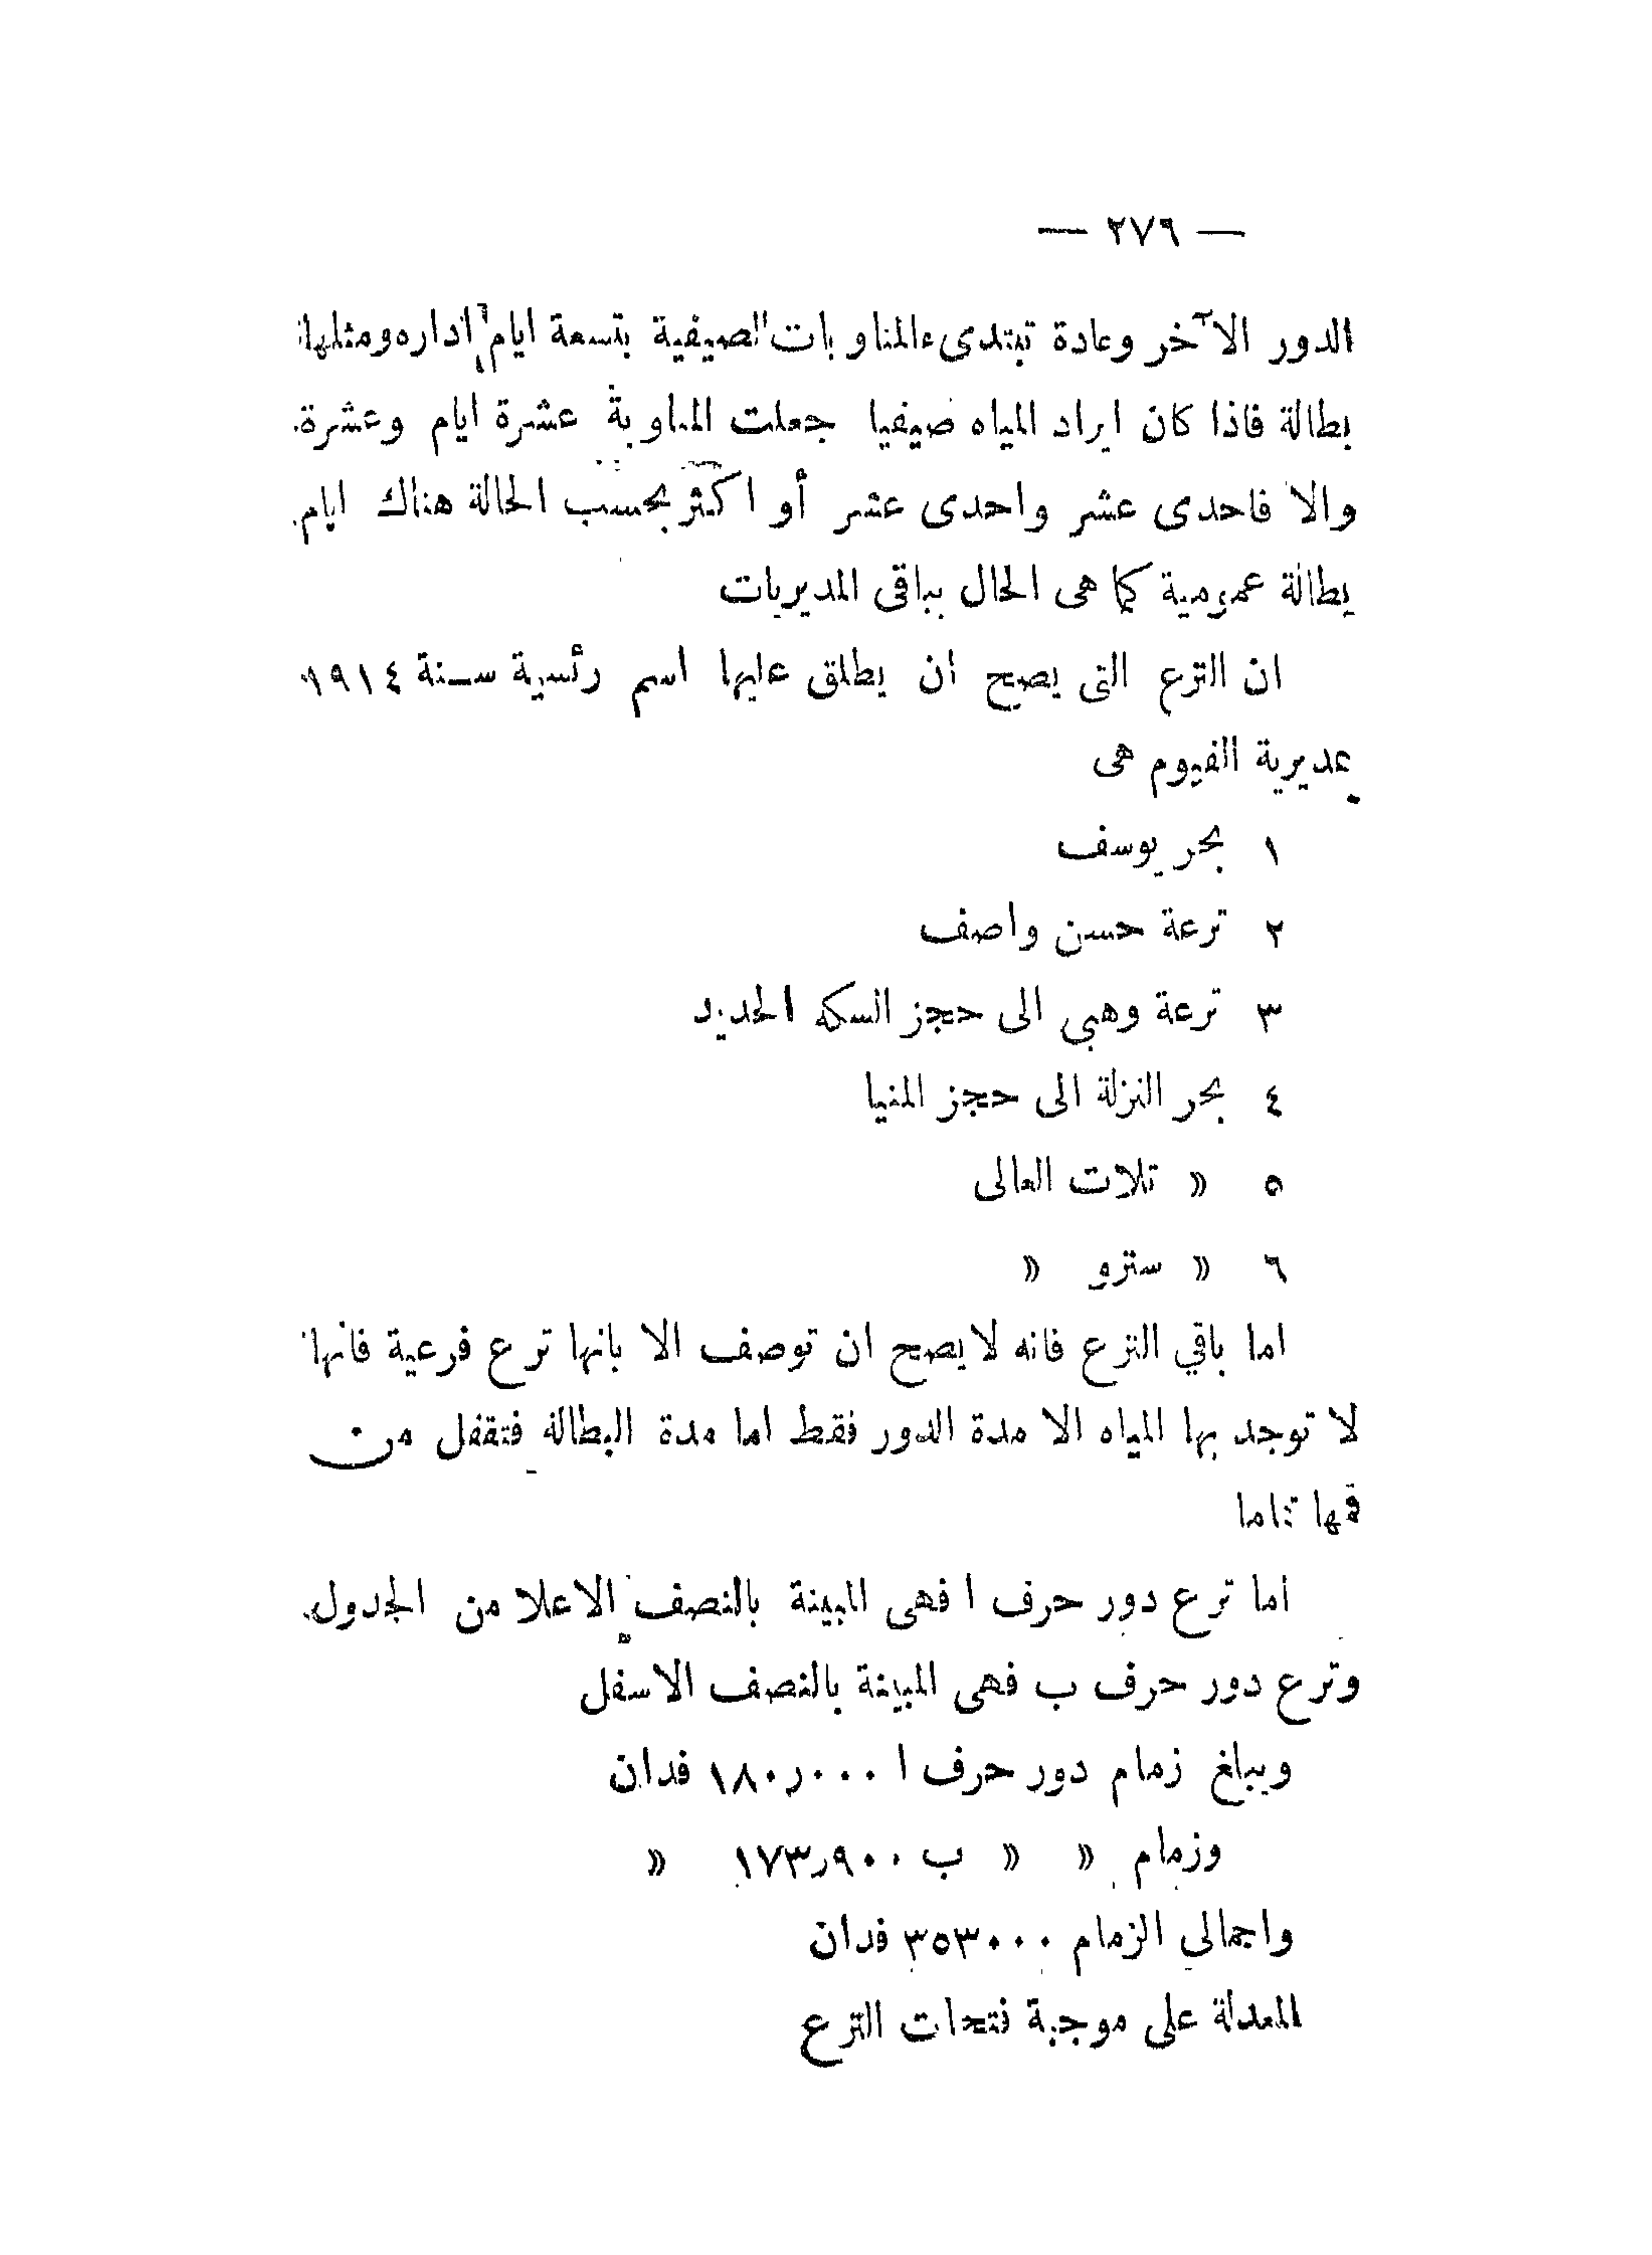 — ٢٧٦ —
الدور الآخر وعادة تبتدىء المناوبات الصيفية بتسعة ايام اداره ومثلها
بطالة فاذا كان ايراد المياه صيفيا جعلت المناوبة عشرة ايام وعشرة
والا فاحدى عشر واحدى عشر أو اكثر بحسب الحالة هناك ايام
بطالة عمومية كما هى الحال بباقى المديريات
ان الترع التى يصح ان يطلق عليها اسم رئسية سنة ١٩١٤
بمديرية الفيوم هى
١ بحر يوسف
٢ ترعة حسن واصف
٣ ترعة وهبي الى حجز السكه الحديد
٤ بحر النزلة الى حجز المنيا
٥ « تلات العالى
٦ « سترو «
اما باقي الترع فانه لا يصح ان توصف الا بانها ترع فرعية فانها
لا توجد بها المياه الا مدة الدور فقط اما مدة البطالة فتقفل من
فمها تماما
اما ترع دور حرف ا فهى المبينة بالنصف الاعلا من الجدول
وترع دور حرف ب فهى المبينة بالنصف الاسفل
ويبلغ زمام دور حرف ا ١٨٠٫٠٠٠ فدان
وزمام « « ب ١٧٣٫٩٠٠ «
واجمالي الزمام ٣٥٣٠٠٠ فدان
المعدلة على موجبة فتحات الترع